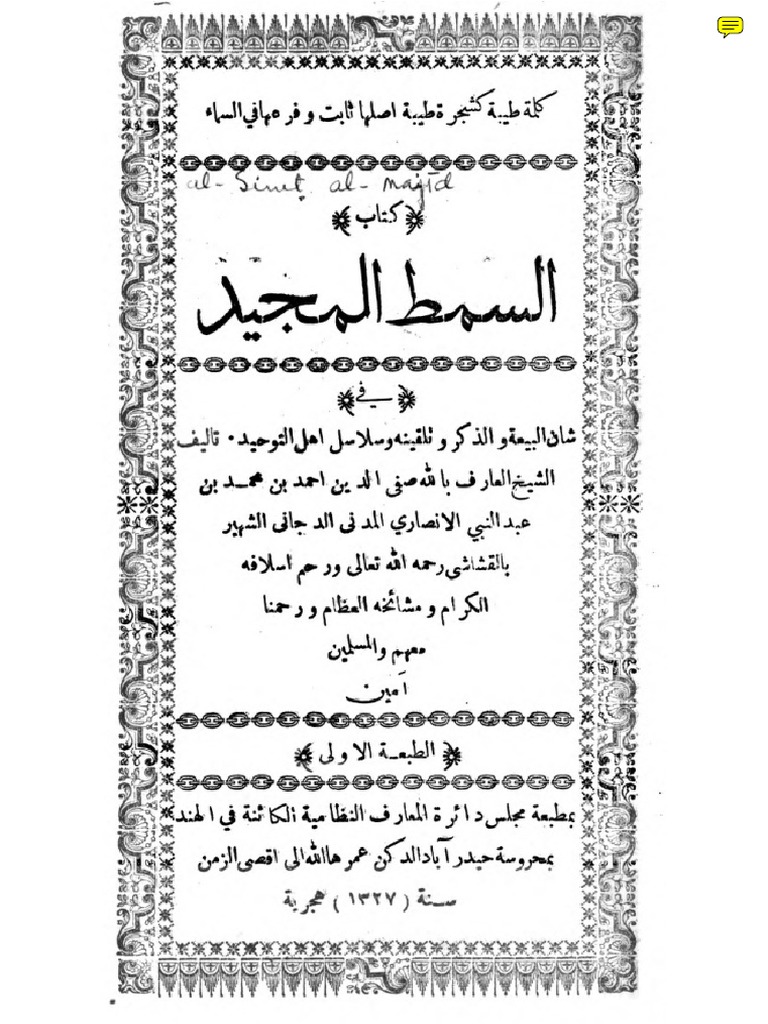 كلمة طيبة كشجرة طيبة اصلها ثابت و فرعها في السماء
al-Simṭ al-majīd
كتاب
السمط المجيد
في
شان البيعة و الذكر و تلقينه و سلاسل اهل التوحيد • تاليف
الشيخ العارف بالله صفى الدين احمد بن محمد بن
عبد النبي الانصاري المدنى الدجانى الشهير
بالقشاشى رحمه الله تعالى و رحم اسلافه
الكرام و مشائخه العظام و رحمنا
معهم والمسلمين
آمين
الطبعة الاولى
بمطبعة مجلس دائرة المعارف النظامية الكائنة في الهند
بمحروسة حيدرآباد الدكن عمرها الله الى اقصى الزمن
سنة (١٣٢٧) هجرية